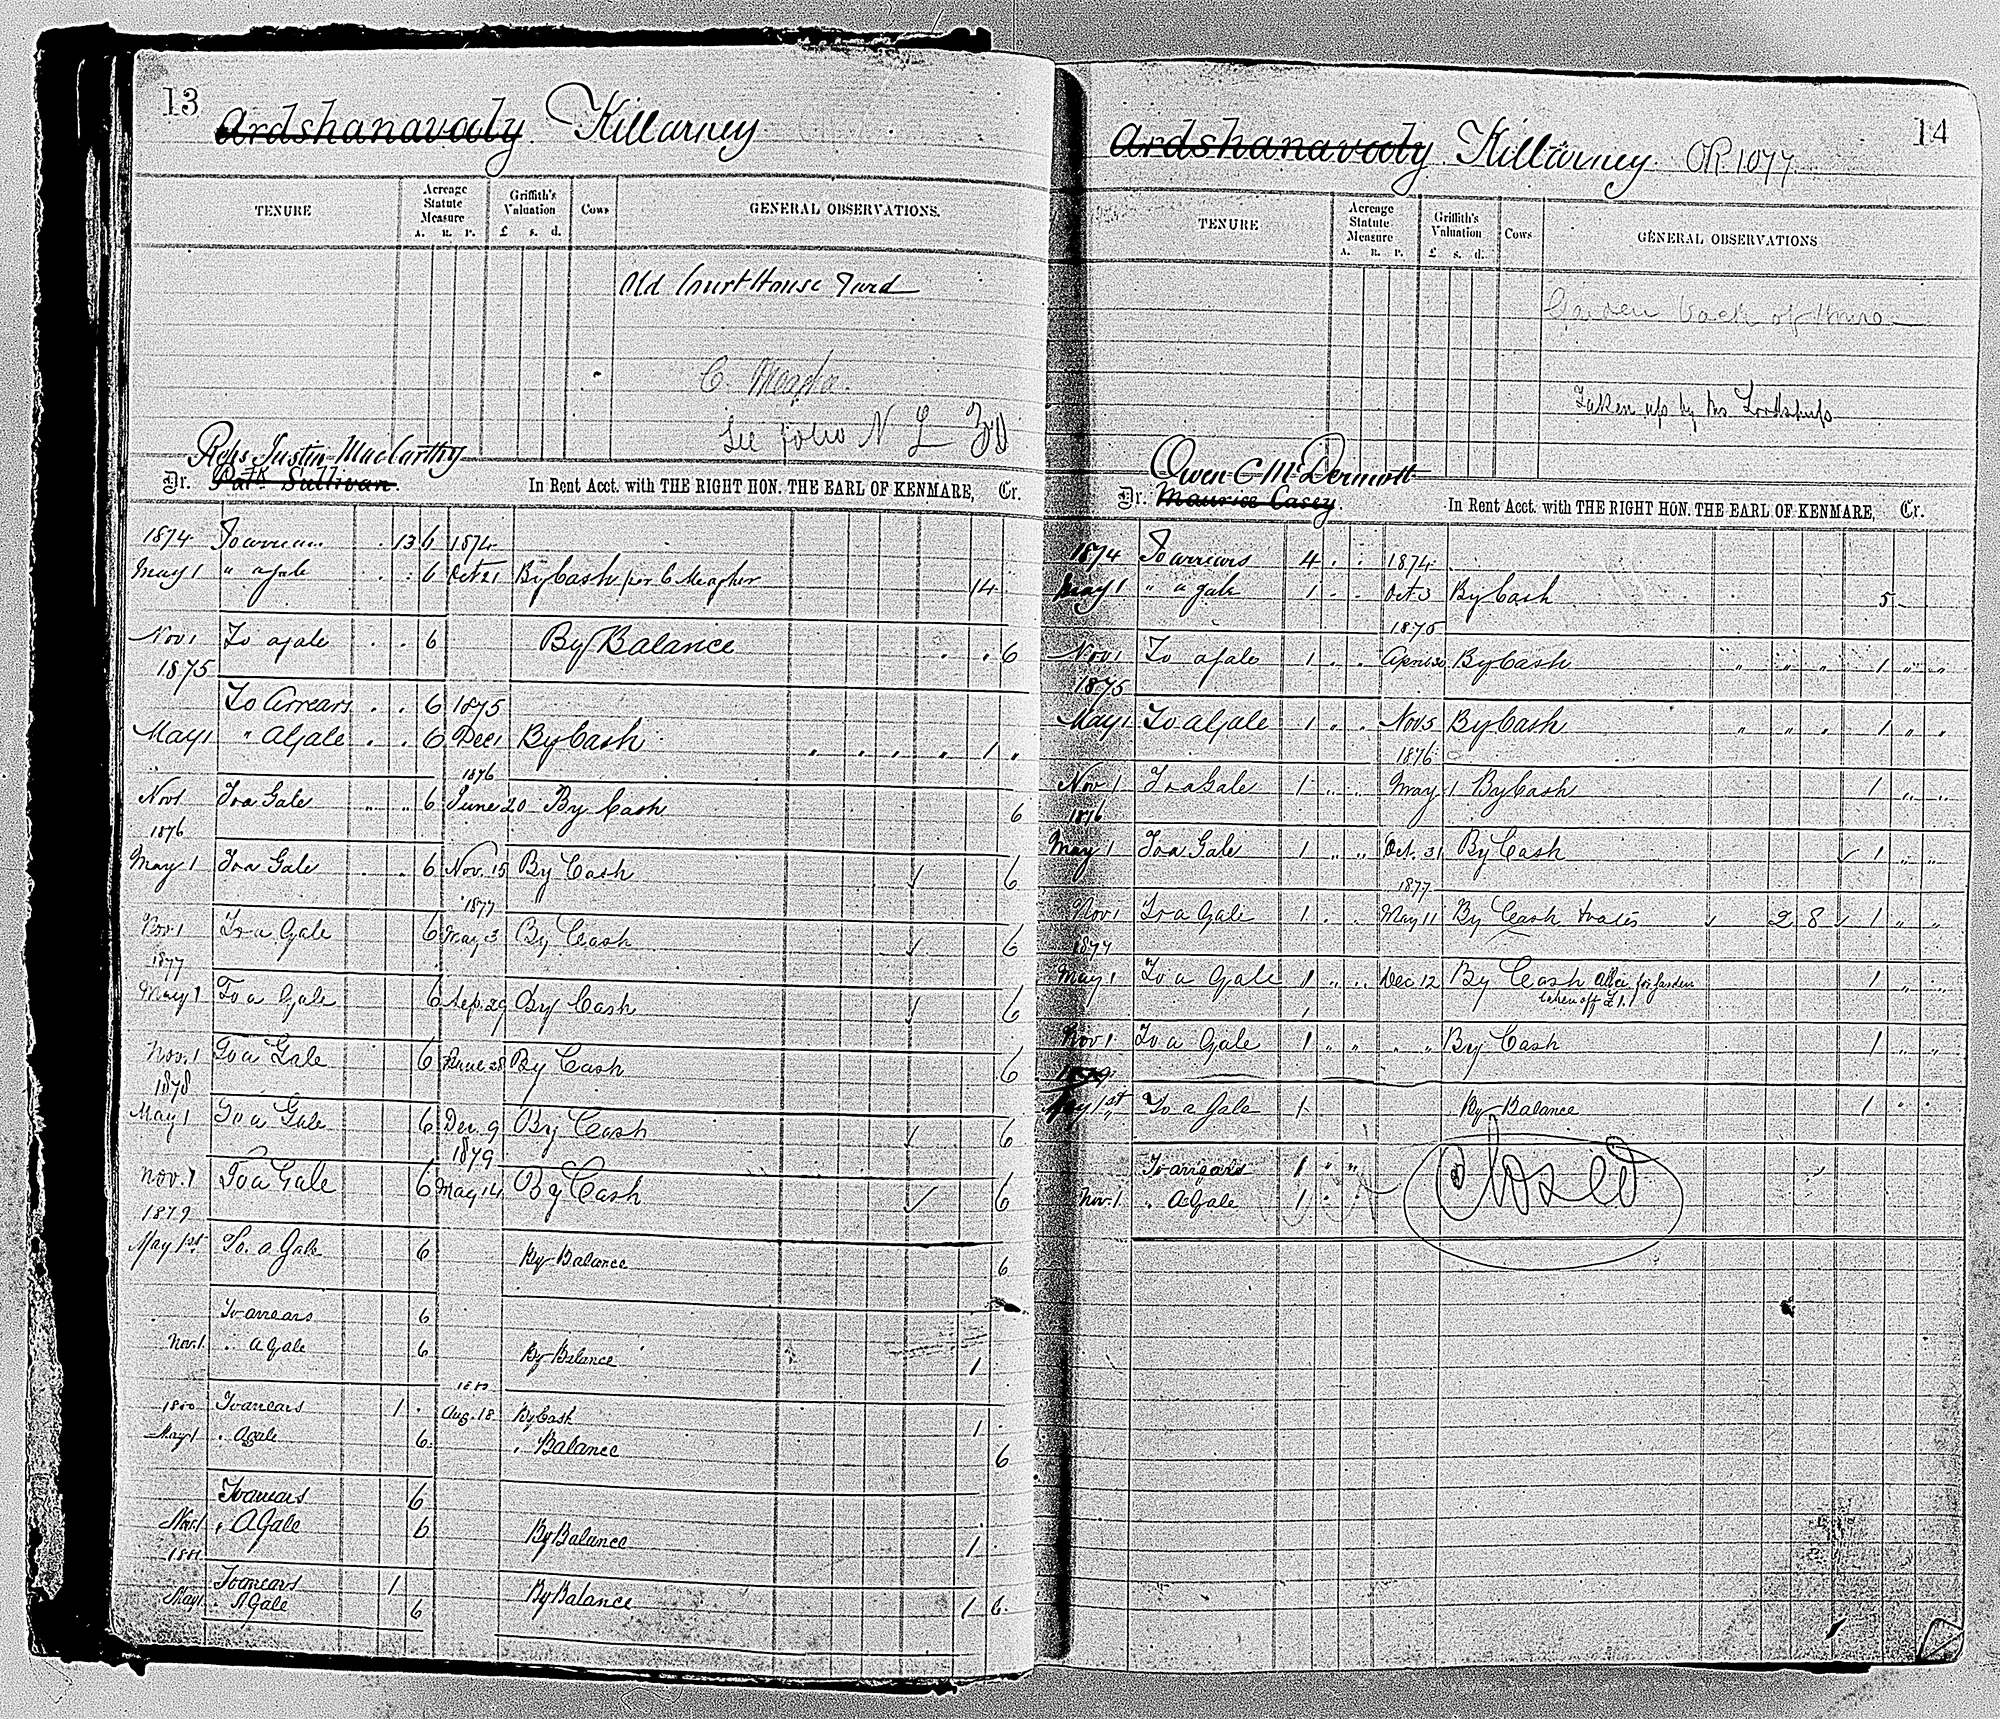 13
Ardshanavooly Killarney
TENURE
Acreage Statute Measure
A. R. P.
Griffith's Valuation
£ s. d.
Cows
GENERAL OBSERVATIONS.
Old Court House Yard
C. Meagher.
See folio N L 30
Reps Justin MacCarthy
Dr. Patk Sullivan. In Rent Acct. with THE RIGHT HON. THE EARL OF KENMARE, Cr.
1874 To arrears . 13 6 1874
May 1 " a gale . . 6 Oct 21 By Cash per C Meagher 14
Nov 1 To a gale . . 6 By Balance . . 6
1875
To Arrears . . 6 1875
May 1 " A Gale . . 6 Dec 1 By Cash " " " " 1 "
1876
Nov 1 To a Gale " " 6 June 20 By Cash 6
1876
May 1 To a Gale . . 6 Nov. 15 By Cash ✓ 6
1877
Nov 1 To a Gale 6 May 3 By Cash ✓ 6
1877
May 1 To a Gale 6 Sep. 29 By Cash ✓ 6
Nov. 1 To a Gale 6 28 By Cash 6
1878
May 1 To a Gale 6 Dec. 9 By Cash ✓ 6
1879
Nov. 1 To a Gale 6 May 14 By Cash ✓ 6
1879
May 1st To a Gale 6 By Balance 6
To arrears 6
Nov. 1 " a Gale 6 By Balance 1
1880
1880 To arrears 1 . Aug. 18 By Cash 1 .
May 1 " A gale 6 " Balance 6
To arrears 6
Nov. 1 " A Gale 6 By Balance 1 .
1881
To arrears 1
May 1 " A Gale 6 By Balance 1 6
14
Ardshanavooly Killarney. OR 1077
TENURE
Acreage Statute Measure
A. R. P.
Griffith's Valuation
£ s. d.
Cows
GENERAL OBSERVATIONS
Garden back of
Taken up by his Lordship
Owen C McDermott
Dr. Maurice Casey. In Rent Acct. with THE RIGHT HON. THE EARL OF KENMARE, Cr.
1874 To arrears 4 . . 1874
May 1 " a gale 1 . . Oct 3 By Cash 5
1875
Nov 1 To a gale 1 . . April 30 By Cash " " " 1 " "
1875
May 1 To a Gale 1 " " Nov 5 By Cash " " " 1 " "
1876
Nov 1 To a Gale 1 " " May 1 By Cash 1 " "
1876
May 1 To a Gale 1 " " Oct. 31 By Cash ✓ 1 " "
1877
Nov 1 To a Gale 1 . " May 11 By Cash & rates ✓ 2 8 ✓ 1 " "
1877
May 1 To a Gale 1 " " Dec 12 By Cash Allce for garden 1 " "
taken off £1.
Nov 1 To a Gale 1 " " " " By Cash 1 " "
1879
May 1st To a Gale 1 By Balance 1 " "
To arrears 1 " "
Nov. 1 " A Gale 1 . .
Closed